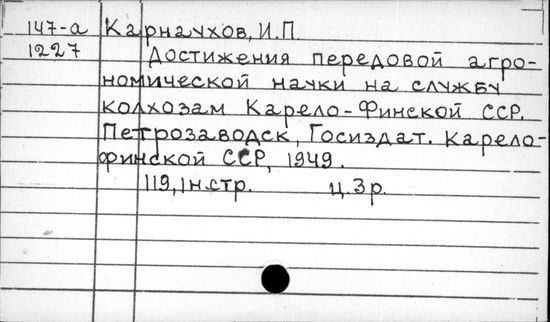 147-а Карнаухов, И.П.
1227 Достижения передовой агро-
номической науки на службу
колхозам Карело-Финской ССР.
Петрозаводск, Госиздат. Карело-
финской ССР, 1949.
119,1н.стр. ц.3р.